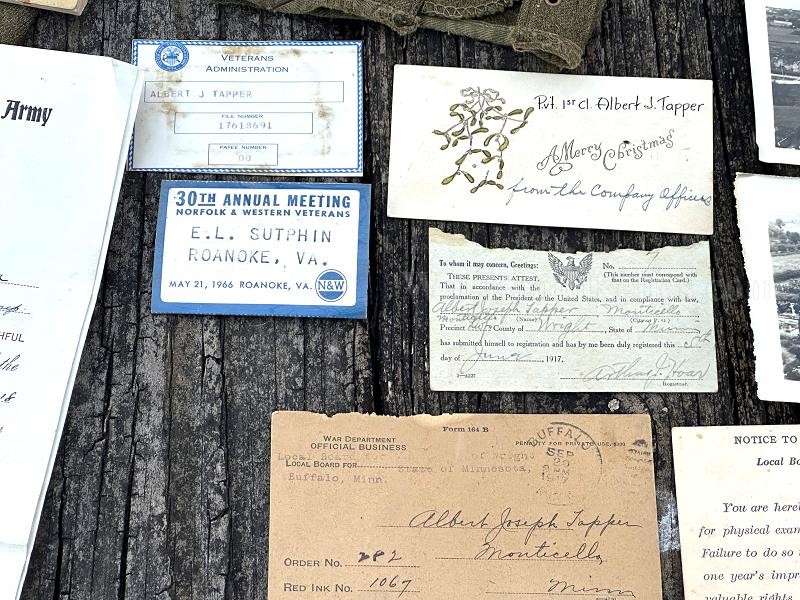 Army
FUL
the
VETERANS
ADMINISTRATION
ALBERT J TAPPER
FILE NUMBER
17618691
PAYEE NUMBER
00
30TH ANNUAL MEETING
NORFOLK & WESTERN VETERANS
E.L. SUTPHIN
ROANOKE, VA.
MAY 21, 1966 ROANOKE, VA.
N&W
Pvt. 1st Cl. Albert J. Tapper
A Merry Christmas
from the Company Officers
To whom it may concern, Greetings:
No. 7
THESE PRESENTS ATTEST,
(This number must correspond with
that on the Registration Card.)
That in accordance with the
proclamation of the President of the United States, and in compliance with law,
Albert Joseph Tapper Monticello
(Name) (City or P. O.)
Precinct County of Wright, State of Minn
has submitted himself to registration and has by me been duly registered this 5th
day of June, 1917.
Arthur J. Hoar
Registrar.
Form 164 B
WAR DEPARTMENT
OFFICIAL BUSINESS
PENALTY FOR PRIVATE USE, $300
BUFFALO
SEP
20
1917
Local Board of Wright
LOCAL BOARD FOR State of Minnesota,
Buffalo, Minn.
Albert Joseph Tapper
Monticello
Minn
ORDER NO. 282
RED INK NO. 1067
NOTICE TO
Local Bo
You are herel
for physical exam
Failure to do so
one year's impr
valuable rights